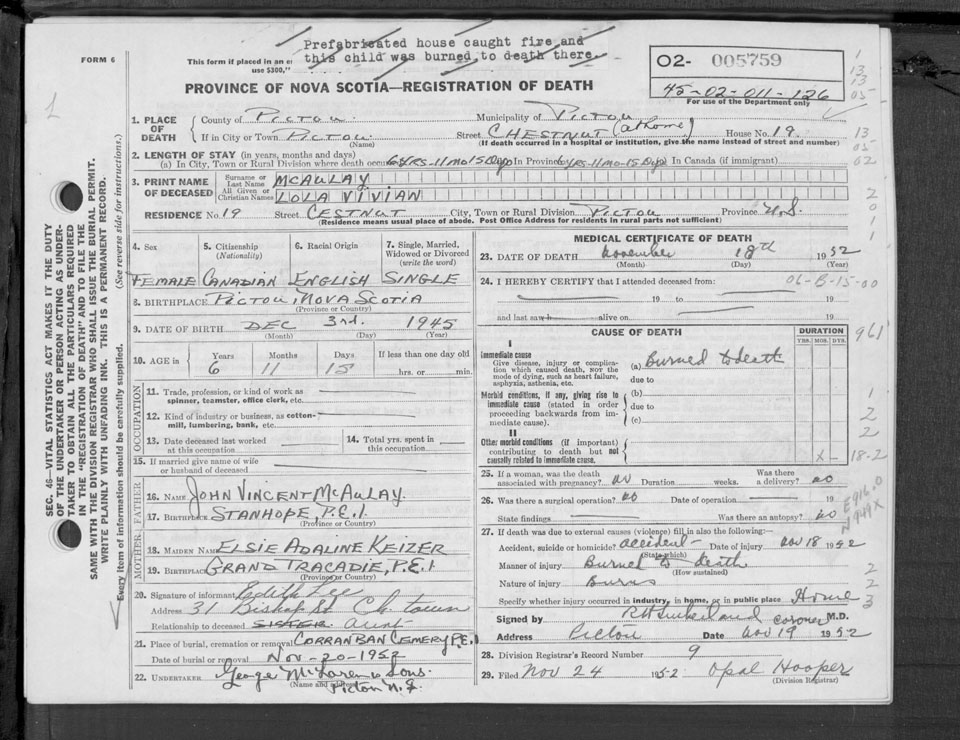 FORM 6
Prefabricated house caught fire and
This form if placed in an en this child was burned to death there.
use $300,"
O2- 005759
45-02-011-126
For use of the Department only
PROVINCE OF NOVA SCOTIA—REGISTRATION OF DEATH
1. PLACE OF DEATH
County of Pictou Municipality of Pictou
If in City or Town Pictou Street CHESTNUT (at home) House No. 19.
(Name) (If death occurred in a hospital or institution, give the name instead of street and number)
2. LENGTH OF STAY (in years, months and days)
(a) In City, Town or Rural Division where death occurred 6 YRS-11 Mo 15 Days In Province 6 YRS-11 Mo-15 Days In Canada (if immigrant)
3. PRINT NAME OF DECEASED
Surname or Last Name MCAULAY
All Given or Christian Names LOLA VIVIAN
RESIDENCE No. 19 Street CESTNUT City, Town or Rural Division PICTOU Province N.S.
(Residence means usual place of abode. Post Office Address for residents in rural parts not sufficient)
4. Sex 5. Citizenship (Nationality) 6. Racial Origin 7. Single, Married, Widowed or Divorced (write the word)
FEMALE CANADIAN ENGLISH SINGLE
8. BIRTHPLACE PICTOU, NOVA SCOTIA
(Province or Country)
9. DATE OF BIRTH DEC 3rd. 1945
(Month) (Day) (Year)
10. AGE in Years Months Days If less than one day old
6 11 15 hrs. or min.
OCCUPATION
11. Trade, profession, or kind of work as
spinner, teamster, office clerk, etc.
12. Kind of industry or business, as cotton-
mill, lumbering, bank, etc.
13. Date deceased last worked at this occupation
14. Total yrs. spent in this occupation
15. If married give name of wife
or husband of deceased
FATHER
16. NAME JOHN VINCENT MCAULAY
17. BIRTHPLACE STANHOPE, P.E.I.
(Province or Country)
MOTHER
18. MAIDEN NAME ELSIE ADALINE KEIZER
19. BIRTHPLACE GRAND TRACADIE, P.E.I
(Province or Country)
20. Signature of informant Edith Lee
Address 31 Bishop St Ch. town
Relationship to deceased SISTER aunt
21. Place of burial, cremation or removal CORRANBAN CEMERY P.E.I
Date of burial or removal Nov-20-1952
22. UNDERTAKER George McLaren & Sons.
(Name and address) Pictou N.S.
MEDICAL CERTIFICATE OF DEATH
23. DATE OF DEATH November 18th 1952
(Month) (Day) (Year)
24. I HEREBY CERTIFY that I attended deceased from: 06-B-15-00
19 to 19
and last saw h alive on 19
CAUSE OF DEATH DURATION
YRS. MOS. DYS.
961
I
Immediate cause
Give disease, injury or complication which caused death, NOT the mode of dying, such as heart failure, asphyxia, asthenia, etc.
(a) Burned to death
due to
Morbid conditions, if any, giving rise to immediate cause (stated in order proceeding backwards from immediate cause).
(b)
due to
(c)
II
Other morbid conditions (if important) contributing to death but not causally related to immediate cause.
X - 18-2
25. If a woman, was the death associated with pregnancy? no Duration weeks. Was there a delivery? no
26. Was there a surgical operation? no Date of operation 19
State findings Was there an autopsy? no
E916.0
N949X
27. If death was due to external causes (violence) fill in also the following:—
Accident, suicide or homicide? accident Date of injury Nov 18 1952
(State which)
Manner of injury Burned to death
(How sustained)
Nature of injury Burns
Specify whether injury occurred in industry, in home, or in public place Home
Signed by coroner M.D.
Address Pictou Date Nov 19 1952
28. Division Registrar's Record Number 9
29. Filed Nov 24 1952 Opal Hooper
(Division Registrar)
SEC. 46—VITAL STATISTICS ACT MAKES IT THE DUTY
OF THE UNDERTAKER OR PERSON ACTING AS UNDER-
TAKER TO OBTAIN ALL THE PARTICULARS REQUIRED
IN THE "REGISTRATION OF DEATH" AND TO FILE THE
SAME WITH THE DIVISION REGISTRAR WHO SHALL ISSUE THE BURIAL PERMIT.
WRITE PLAINLY WITH UNFADING INK. THIS IS A PERMANENT RECORD.
Every item of information should be carefully supplied. (See reverse side for instructions.)